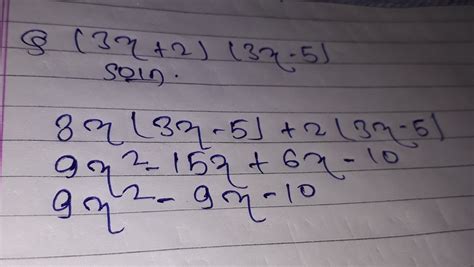 Q (3x+2) (3x-5)
Soln.
3x (3x-5) + 2 (3x-5)
9x²-15x + 6x - 10
9x² - 9x - 10